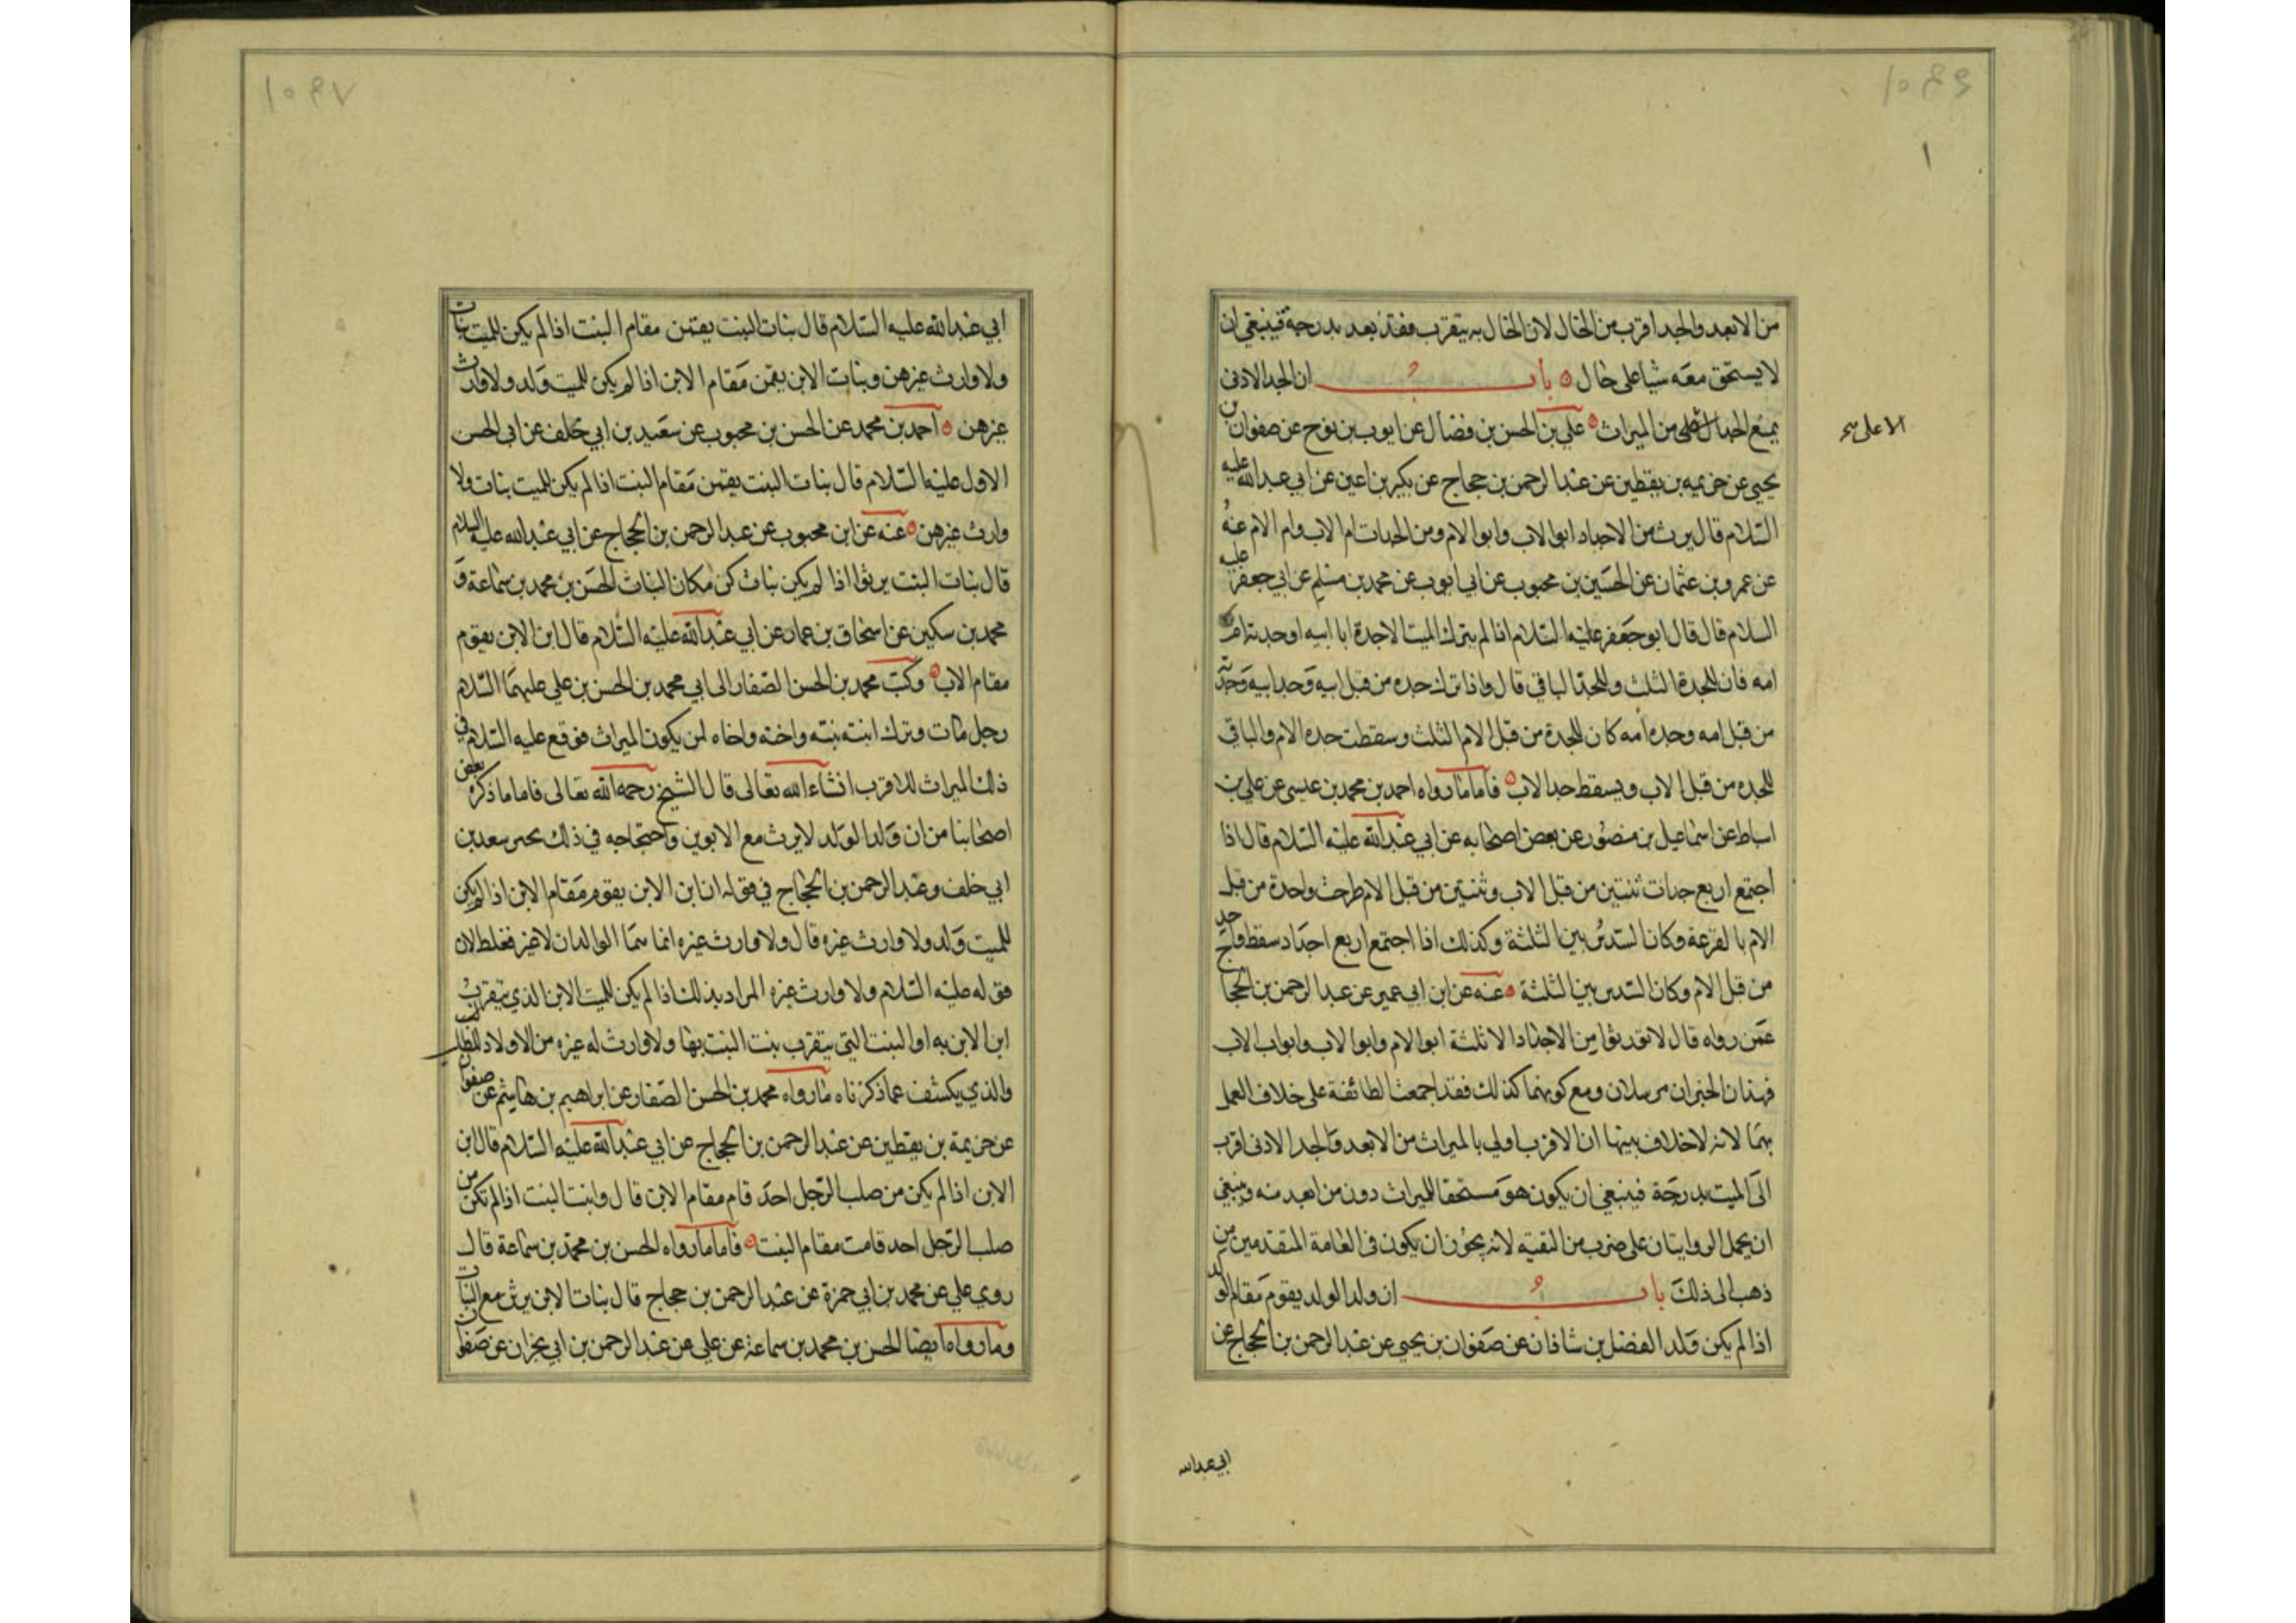 من الابعد والجد اقرب من الخال لان الخال به يتقرب فقد بعد بدرجة فينبغي ان
لا يستحق معه شيا على حال باب ان الجد الادنى
يمنع الجد الاعلى من الميراث علي بن الحسن بن فضال عن ايوب بن نوح عن صفوان بن
الاعلى
يحيى عن خزيمه بن يقطين عن عبد الرحمن بن حجاج عن بكير بن اعين عن ابي عبد الله عليه
السلام قال يرث من الاجداد ابو الاب وابو الام ومن الجدات ام الاب وام الام عنه
عن عمرو بن عثمان عن الحسين بن محبوب عن ابي ايوب عن محمد بن مسلم عن ابي جعفر عليه
السلام قال قال ابو جعفر عليه السلام اذا لم يترك الميت الا جدة ابا ابيه او جدته ام
امه فان للجدة الثلث وللجد الباقي قال واذا ترك جده من قبل ابيه وجد ابيه وجدته
من قبل امه وجده امه كان للجدة من قبل الام الثلث وسقطت جده الام والباقي
للجده من قبل الاب ويسقط جد الاب فاما ما رواه احمد بن محمد بن عيسى عن علي بن
اسباط عن اسماعيل بن منصور عن بعض اصحابه عن ابي عبد الله عليه السلام قال اذا
اجتمع اربع جدات ثنتين من قبل الاب وثنتين من قبل الام طرحت واحدة من قبل
الام بالقرعة وكان السدس بين الثلثة وكذلك اذا اجتمع اربع اجداد سقط واحد
من قبل الام وكان السدس بين الثلثة عنه عن ابن ابي عمير عن عبد الرحمن بن الحجا
عمن رواه قال لا تورثوا من الاجداد الا ثلثة ابو الام وابو الاب وابو اب الاب
فهذان الخبران مرسلان ومع كونهما كذلك فقد اجمعت الطائفة على خلاف العمل
بهما لانه لا خلاف بينها ان الاقرب اولى بالميراث من الابعد والجد الادنى اقرب
الى الميت بدرجة فينبغي ان يكون هو مستحقا للميراث دون من ابعد منه وينبغي
ان يحمل الروايتان على ضرب من التقيه لانه يجوز ان يكون في العامة المتقدمين من
ذهب الى ذلك باب ان ولد الولد يقوم مقام الولد
اذا لم يكن ولد الفضل بن شاذان عن صفوان بن يحيى عن عبد الرحمن بن الحجاج عن
ابي عبد الله
ابي عبد الله عليه السلام قال بنات البنت يقمن مقام البنت اذا لم يكن للميت بنات
ولا وارث غيرهن وبنات الابن يقمن مقام الابن اذا لم يكن للميت ولد ولا وارث
غيرهن احمد بن محمد عن الحسن بن محبوب عن سعيد بن ابي خلف عن ابي الحسن
الاول عليه السلام قال بنات البنت يقمن مقام البنت اذا لم يكن للميت بنات ولا
وارث غيرهن عنه عن ابن محبوب عن عبد الرحمن بن الحجاج عن ابي عبد الله عليه السلام
قال بنات البنت يرثوا اذا لم يكن بنات كن مكان البنات الحسن بن محمد بن سماعة و
محمد بن سكين عن اسحاق بن عمار عن ابي عبد الله عليه السلام قال ابن الابن يقوم
مقام الاب وكتب محمد بن الحسن الصفار الى ابي محمد بن الحسن بن علي عليهما السلام
رجل مات وترك ابنة بنته واخته واخاه لمن يكون الميراث فوقع عليه السلام في
ذلك الميراث للاقرب انشاء الله تعالى قال الشيخ رحمه الله تعالى فاما ما ذكره بعض
اصحابنا من ان ولد الولد لا يرث مع الابوين واحتجاجه في ذلك سعد بن
ابي خلف وعبد الرحمن بن الحجاج في قوله ان ابن الابن يقوم مقام الابن اذا لم يكن
للميت ولد ولا وارث غيره قال ولا وارث غيره انما هما الوالدان لا غير فغلط لان
قوله عليه السلام ولا وارث غيره المراد بذلك اذا لم يكن للميت الابن الذي يتقرب
ابن الابن به او البنت التي يتقرب بنت البنت بها ولا وارث له غيره من الاولاد للصلب
والذي يكشف عما ذكرناه ما رواه محمد بن الحسن الصفار عن ابراهيم بن هاشم عن صفوان
عن خزيمة بن يقطين عن عبد الرحمن بن الحجاج عن ابي عبد الله عليه السلام قال ابن
الابن اذا لم يكن من صلب الرجل احد قام مقام الابن قال وابنت البنت اذا لم تكن من
صلب الرجل احد قامت مقام البنت فاما ما رواه الحسن بن محمد بن سماعة قال
روى علي عن محمد بن ابي حمزة عن عبد الرحمن بن حجاج قال بنات الابن يرثن مع البنات
وما رواه ايضا الحسن بن محمد بن سماعة عن علي عن عبد الرحمن بن ابي نجران عن صفوان